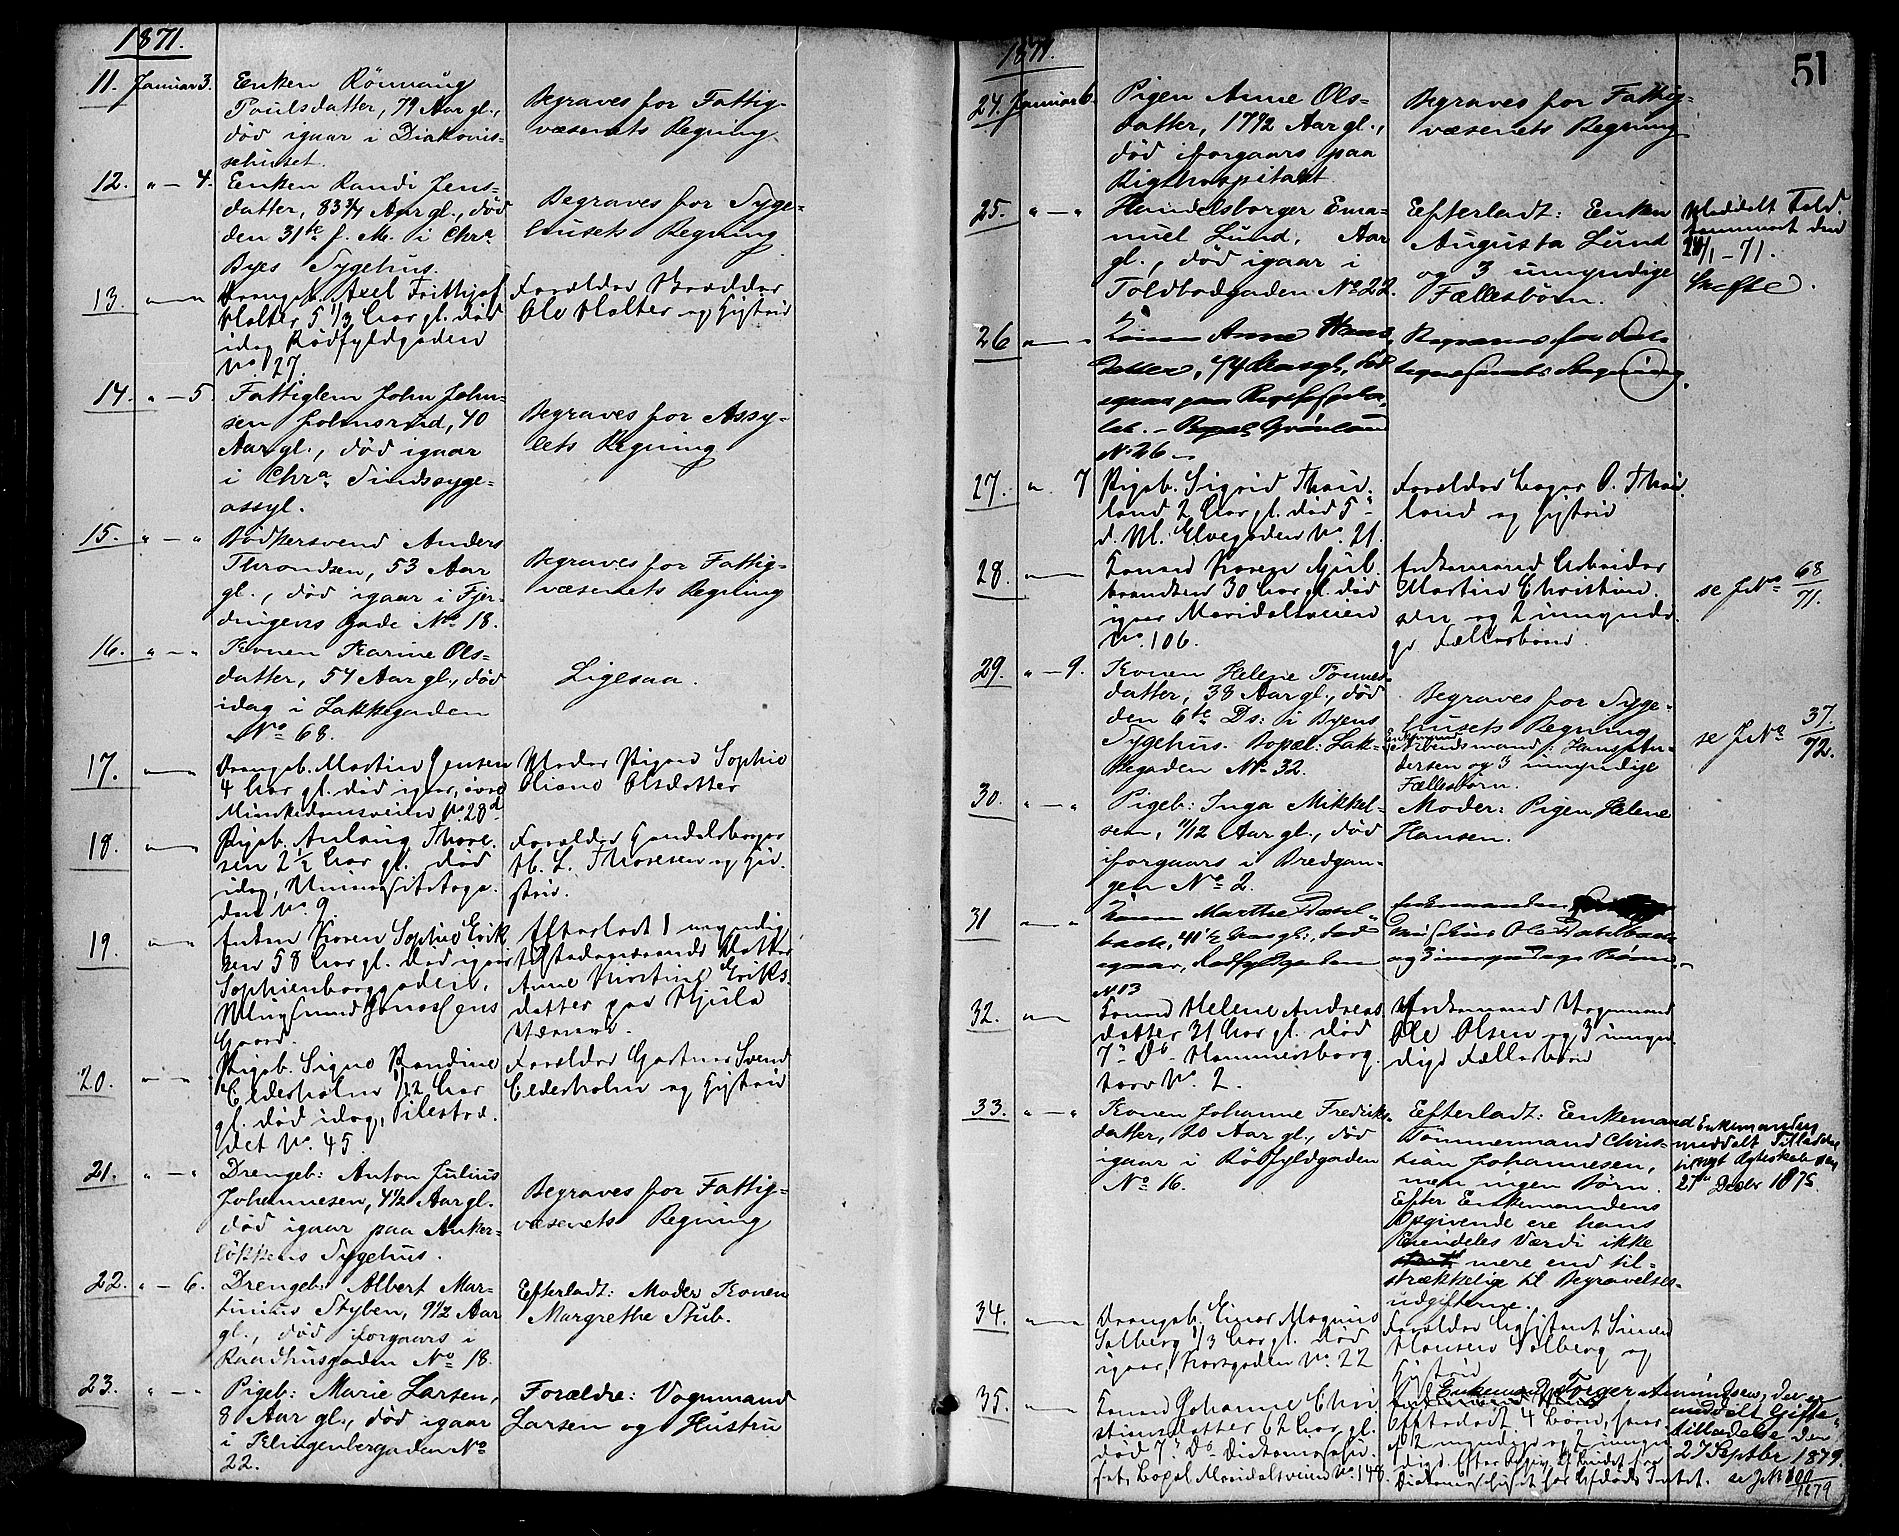 1871.
11. Januar 3. Enken Rönnaug
Paulsdatter, 79 Aar gl.,
död igaar i Diakonis-
sehuset.
Begraves for Fattig-
væsenets Regning
12. " - 4. Enken Randi Jens-
datter, 83 3/4 Aar gl., död
den 31te f. M. i Chra
Byes Sygehus.
Begraves for Syge-
husets Regning
13. Drengeb. Axel Frithjof
Holter 5 1/3 Aar gl. död
idag Rödfyldgaden
No. 27.
Forældre
Ole Holter og Hustru
14. " - 5. Fattiglem John John-
sen Holmsrud, 40
Aar gl., död igaar
i Chra Sindssyge-
assyl.
Begraves for Assy-
lets Regning
15. " - " Bödkersvend Anders
Throndsen, 53 Aar
gl., död igaar i Fjer-
dingens Gade No 18.
Begraves for Fattig-
væsenets Regning
16. " - " Konen Karine Ols-
datter, 54 Aar gl., död
idag i Lakkegaden
No 68.
Ligesaa.
17. Drengeb. Martin Jensen
4 Aar gl. död igaar, övre
No. 28d
Moder Pigen Sophie
Oliane Olsdatter
18. Pigeb. Anlaug Thore-
sen 2 1/2 Aar gl. död
idag, Universitetsga-
den No. 9
Forældre Handelsborger
H. L. Thoresen og Hu-
stru.
19. Enken Karen Sophie Erik
sen 58 Aar gl. död igaar
Sophienberggaden,
Gaard.
Efterladt 1 umyndig
Datter
Anne Kirstine Eriks-
datter paa Hjula
Væveri.
20. Pigeb. Signe Randine
Elderholm 1/12 Aar
gl. död idag, Pilestræ-
det No. 45
Forældre Gartner Svend
Elderholm og Hustru
21. " - " Drengeb: Anton Julius
Johannesen, 4 1/2 Aar gl.
död igaar paa Anker-
lökkens Sygehus.
Begraves for Fattig-
væsenets Regning
22. " - 6. Drengeb: Albert Mar-
tinius Styben, 9 1/2 Aar
gl., död iforgaars i
Raadhusgaden No 18.
Efterladt: Moder Konen
Margrethe Stub.
23. " - " Pigeb: Marie Larsen,
8 Aar gl., död igaar
i Klingenberggaden No
22.
Forældre: Vognmand
Larsen og Hustru
1871.
51
24. Januar 6. Pigen Anne Ols-
datter, 17 7/12 Aar gl.,
död iforgaars paa
Rigshospitalet
Begraves for Fattig-
væsenets Regning
25. " - " Handelsborger Ema-
nuel Lund, Aar
gl., död igaar i
Toldbodgaden No 22.
Efterladt: Enken
Augusta Lund
og 3 umyndige
Fællesbörn.
Meddelt
den
24/1 - 71.
26 Konen Anne Hans
datter, 74 Aar gl., död
igaar paa
Bopæl Grönland
N. 26
Begraves for
Regning.
27. " 7 Pigeb. Sigrid Thou-
land 2 Aar gl. död 5te
d. M. Elvegaden No. 21.
Forældre O. Thou-
land og Hustru
28. Konen Karen Gul-
brandsen 30 Aar gl. död
igaar Maridalsveien
No. 106.
Enkemand Arbeider
Martin Christian-
sen og 2 umyndi-
ge Fællesbörn.
se J No 68/71.
29. " - 9. Konen Helene Tönnes-
datter, 38 Aar gl., död
den 6te Ds: i Byens
Sygehus. Bopæl: Lak-
kegaden No 32.
Begraves for Syge-
husets Regning
Enkemand
Arbeidsmand Hans Pe-
dersen og 3 umyndige
Fællesbörn.
se J No 37/72.
30. " - " Pigeb: Inga Mikkel-
sen, 11/12 Aar gl., död
iforgaars i Bredgan-
gen No 2.
Moder: Pigen Helene
Hansen.
31 Konen Marthe Dæhl-
bæk, 41 1/2 Aar gl., död
igaar, Rödfyldgaden
N. 13
Enkemanden
Ole
og 3 umyndige Börn.
32. Konen Helene Andreas
datter 31 Aar gl. död
7de Ds Hammersborg
torv No. 2.
Enkemand Vognmand
Ole Olsen og 3 umyn-
dige Fællesbörn
33. " - " Konen Johanne Fredriks-
datter, 20 Aar gl., död
igaar i Rödfyldgaden
No 16.
Efterladt: Enkemand
Tömmermand Chris-
tian Johannesen,
men ingen Börn.
Efter Enkemandens
Opgivende ere hans
Eiendeles Værdi ikke
mere end til-
strækkelig til Begravelses-
udgifterne.
Enkemanden
meddelt Tilladelse
til nyt Ægteskab den
27de Decbr 1875
34. Drengeb. Einar Magnus
Solberg 1/3 Aar gl. död
igaar, No. 22
Forældre Assistent
Hansen Solberg og
Hustru
35. Konen Johanne Chri
stiansdatter 62 Aar gl.
död 7de Ds Diakonissehu-
set, Bopæl Maridalsveien No. 148.
Enkemand Torger Amundsen, der er
meddelt Gifte-
tilladelse den
27 Septbr 1879.
Efterladt 4 Börn, hvor
af 2 myndige og 2 umyn
dige
se J N
1879